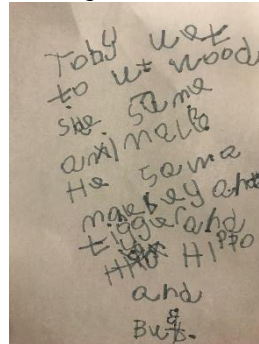 Toby wet
to ut wood
she same
animals
He sama
monkey and
tigger and
HIPPO
and
But